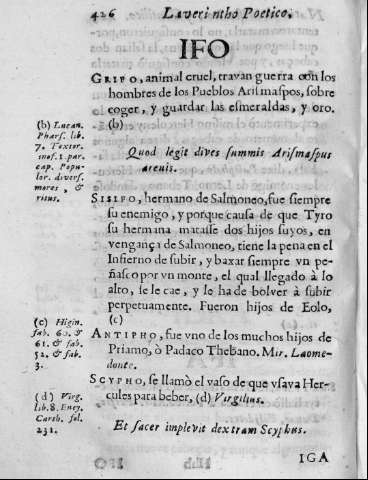 426 Laverintho Poetico,
IFO
GRIFO, animal cruel, travan guerra con los
hombres de los Pueblos Arismaspos, sobre
coger, y guardar las esmeraldas, y oro.
(b)
(b) Lucan.
Phars. lib.
7. Textor.
inof. 1. par.
cap. Popu-
lor. divers.
mores, &
ritus.
Quod legit dives summis Arismaspus
arenis.
SISIFO, hermano de Salmoneo, fue siempre
su enemigo, y porque causa de que Tyro
su hermana matasse dos hijos suyos, en
vengança de Salmoneo, tiene la pena en el
Infierno de subir, y baxar siempre vn pe-
ñasco por vn monte, el qual llegado à lo
alto, se le cae, y le ha de bolver à subir
perpetuamente. Fueron hijos de Eolo,
(c)
(c) Higin.
fab. 60. &
61. & fab.
52. & fab.
3.
ANTIPHO, fue vno de los muchos hijos de
Priamo, ò Padaco Thebano. Mir. Laome-
donte.
SCYPHO, se llamò el vaso de que vsava Her-
cules para beber, (d) Virgilius.
(d) Virg.
lib. 8. Eney.
Carth. fol.
231.
Et sacer implevit dextram Scyphus.
IGA